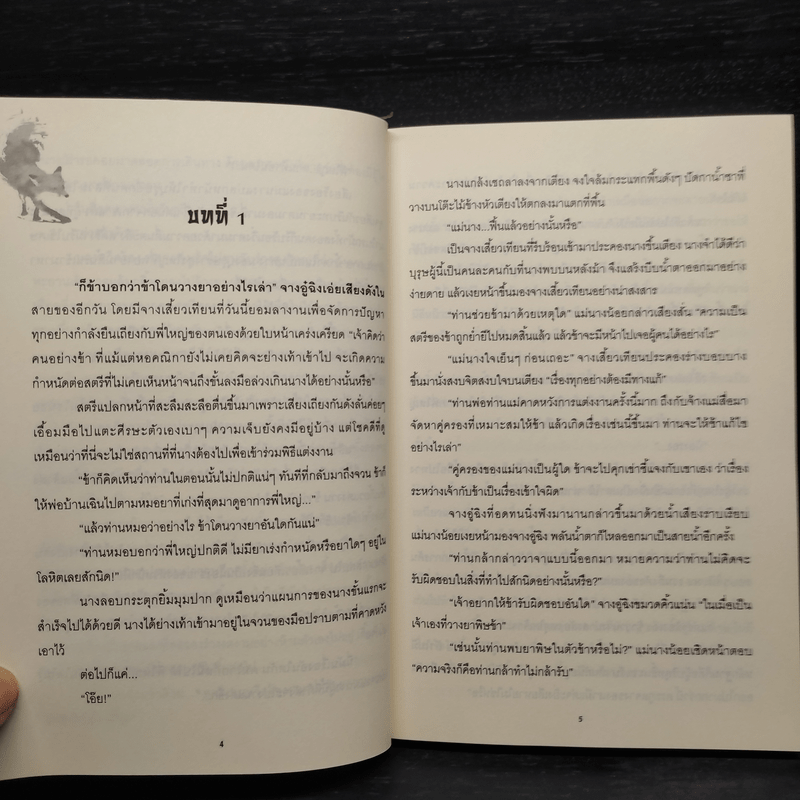 บทที่ 1
"ก็ข้าบอกว่าข้าโดนวางยาอย่างไรเล่า" จางอู๋ฉิงเอ่ยเสียงดังใน
สายของอีกวัน โดยมีจางเสี้ยวเทียนที่วันนี้ยอมลางานเพื่อจัดการปัญหา
ทุกอย่างกำลังยืนเถียงกับพี่ใหญ่ของตนเองด้วยใบหน้าเคร่งเครียด "เจ้าคิดว่า
คนอย่างข้า ที่แม้แต่หอคณิกายังไม่เคยคิดจะย่างเท้าเข้าไป จะเกิดความ
กำหนัดต่อสตรีที่ไม่เคยเห็นหน้าจนถึงขั้นลงมือล่วงเกินนางได้อย่างนั้นหรือ"
สตรีแปลกหน้าที่สะลืมสะลือตื่นขึ้นมาเพราะเสียงเถียงกันดังลั่นค่อยๆ
เอื้อมมือไปแตะศีรษะตัวเองเบาๆ ความเจ็บยังคงมีอยู่บ้าง แต่โชคดีที่ดู
เหมือนว่าที่นี่จะไม่ใช่สถานที่ที่นางต้องไปเพื่อเข้าร่วมพิธีแต่งงาน
"ข้าก็คิดเห็นว่าท่านในตอนนั้นไม่ปกติแน่ๆ ทันทีที่กลับมาถึงจวน ข้าก็
ให้พ่อบ้านเฉินไปตามหมอยาที่เก่งที่สุดมาดูอาการพี่ใหญ่..."
"แล้วท่านหมอว่าอย่างไร ข้าโดนวางยาอันใดกันแน่"
"ท่านหมอบอกว่าพี่ใหญ่ปกติดี ไม่มียาเร่งกำหนัดหรือยาใดๆ อยู่ใน
โลหิตเลยสักนิด!"
นางลอบกระตุกยิ้มมุมปาก ดูเหมือนว่าแผนการของนางขั้นแรกจะ
สำเร็จไปได้ด้วยดี นางได้ย่างเท้าเข้ามาอยู่ในจวนของมือปราบตามที่คาดหวัง
เอาไว้
ต่อไปก็แค่...
"โอ๊ย!"
4
นางแกล้งเซถลาลงจากเตียง จงใจล้มกระแทกพื้นดังๆ ปัดกาน้ำชาที่
วางบนโต๊ะไม้ข้างหัวเตียงให้ตกลงมาแตกที่พื้น
"แม่นาง...ฟื้นแล้วอย่างนั้นหรือ"
เป็นจางเสี้ยวเทียนที่รีบร้อนเข้ามาประคองนางขึ้นเตียง นางจำได้ดีว่า
บุรุษผู้นี้เป็นคนละคนกับที่นางพบบนหลังม้า จึงแสร้งบีบน้ำตาออกมาอย่าง
ง่ายดาย แล้วเงยหน้าขึ้นมองจางเสี้ยวเทียนอย่างน่าสงสาร
"ท่านช่วยข้ามาด้วยเหตุใด" แม่นางน้อยกล่าวเสียงสั่น "ความเป็น
สตรีของข้าถูกย่ำยีไปหมดสิ้นแล้ว แล้วข้าจะมีหน้าไปเจอผู้คนได้อย่างไร"
"แม่นางใจเย็นๆ ก่อนเถอะ" จางเสี้ยวเทียนประคองร่างบอบบาง
ขึ้นมานั่งสงบจิตสงบใจบนเตียง "เรื่องทุกอย่างต้องมีทางแก้"
"ท่านพ่อท่านแม่คาดหวังการแต่งงานครั้งนี้มาก ถึงกับจ้างแม่สื่อมา
จัดหาคู่ครองที่เหมาะสมให้ข้า แล้วเกิดเรื่องเช่นนี้ขึ้นมา ท่านจะให้ข้าแก้ไข
อย่างไรเล่า"
"คู่ครองของแม่นางเป็นผู้ใด ข้าจะไปคุกเข่าชี้แจงกับเขาเอง ว่าเรื่อง
ระหว่างเจ้ากับข้าเป็นเรื่องเข้าใจผิด"
จางอู๋ฉิงที่อดทนนิ่งฟังมานานกล่าวขึ้นมาด้วยน้ำเสียงราบเรียบ
แม่นางน้อยเงยหน้ามองจางอู๋ฉิง พลันน้ำตาก็ไหลออกมาเป็นสายน้ำอีกครั้ง
"ท่านกล้ากล่าววาจาแบบนี้ออกมา หมายความว่าท่านไม่คิดจะ
รับผิดชอบในสิ่งที่ทำไปสักนิดอย่างนั้นหรือ?"
"เจ้าอยากให้ข้ารับผิดชอบอันใด" จางอู๋ฉิงขมวดคิ้วแน่น "ในเมื่อเป็น
เจ้าเองที่วางยาพิษข้า"
"เช่นนั้นท่านพบยาพิษในตัวข้าหรือไม่?" แม่นางน้อยเชิดหน้าตอบ
"ความจริงก็คือท่านกล้าทำไม่กล้ารับ"
5